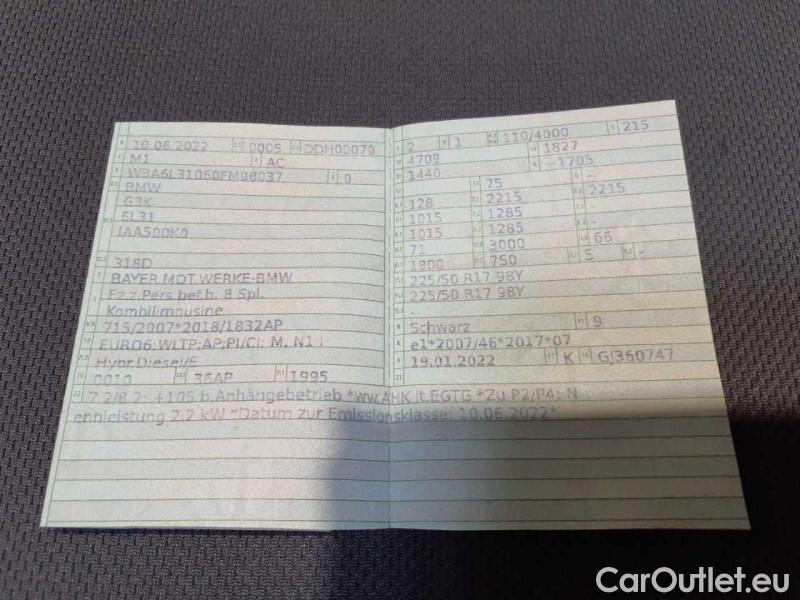 10.06.2022 0005 DDH00079
M1 AC
WBA6L31060FM98037 0
BMW
G3K
6L31
IAA500K0
318D
BAYER.MOT.WERKE-BMW
Fz.z.Pers.bef.b. 8 Spl.
Kombilimousine
715/2007*2018/1832AP
EURO6;WLTP;AP;PI/CI; M, N1 I
Hybr.Diesel/E
0010 36AP 1995
2 1 110/4000 215
4709 1827
1440 —1705
75 -
128 2215 2215
1015 1285 -
1015 1285 -
71 3000 66
1800 750 5 -
225/50 R17 98Y
225/50 R17 98Y
-
Schwarz 9
e1*2007/46*2017*07
19.01.2022 K GJ360747
7.2/8.2: +105 b.Anhängebetrieb *ww.AHK lt.EGTG *Zu P2/P4: N
ennleistung 2.2 kW *Datum zur Emissionsklasse: 10.06.2022*
CarOutlet.eu